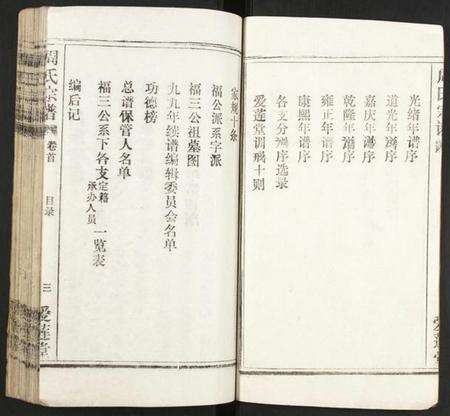 光绪年谱序
道光年谱序
嘉庆年谱序
乾隆年谱序
雍正年谱序
康熙年谱序
各支分谱序选录
爱莲堂训戒十则
家规十条
福公派系字派
福三公祖墓图
九九年续谱编辑委员会名单
功德榜
总谱保管人名单
福三公系下各支定籍承办人员一览表
编后记
周氏宗谱 卷首 目录 三 爱莲堂